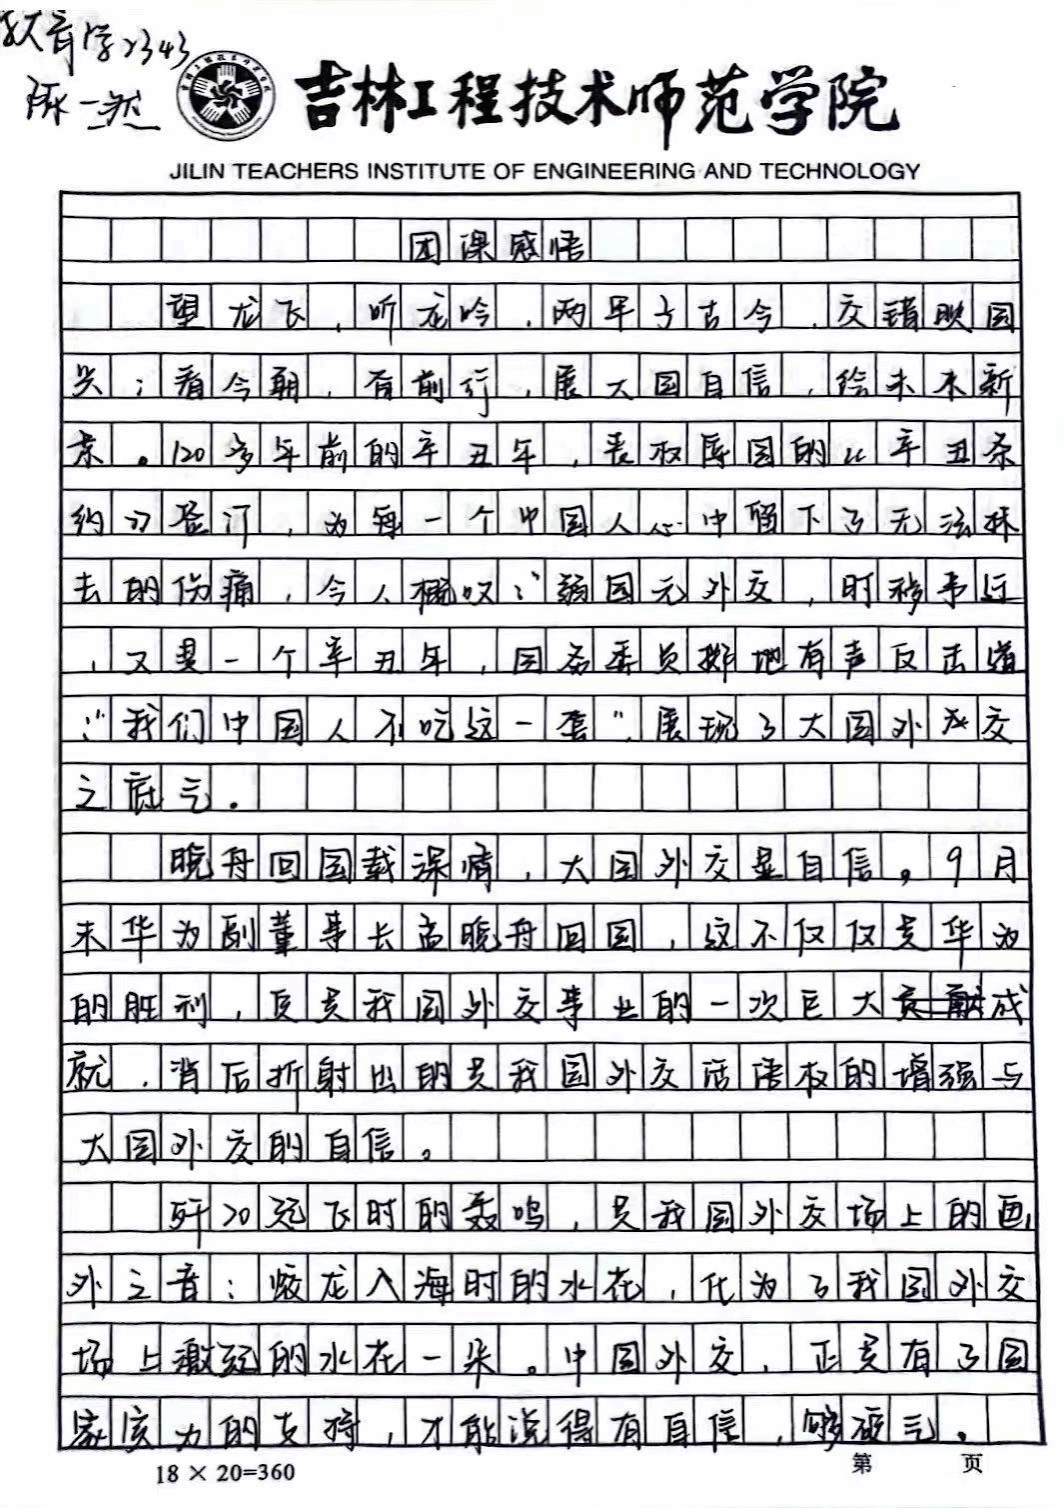 教育学2343
陈一然
吉林工程技术师范学院
JILIN TEACHERS INSTITUTE OF ENGINEERING AND TECHNOLOGY
团课感悟
望龙飞，听龙吟，两年于古今，交错映国
兴；看今朝，有前行，展大国自信，绘未来新
景。120多年前的辛丑年，丧权辱国的《辛丑条
约》签订，为每一个中国人心中留下了无法抹
去的伤痛，今人慨叹：“弱国无外交，时移事迁
，又是一个辛丑年，国务委员掷地有声反击道
：“我们中国人不吃这一套”，展现了大国外交
之底气。
晚舟回国载深情，大国外交显自信。9月
末华为副董事长孟晚舟回国，这不仅仅是华为
的胜利，更是我国外交事业的一次巨大成
就，背后折射出的是我国外交话语权的增强与
大国外交的自信。
歼20冠飞时的轰鸣，是我国外交场上的画
外之音；蛟龙入海时的水花，化为了我国外交
场上激起的水花一朵。中国外交，正是有了国
家实力的支持，才能说得有自信，够硬气。
18×20=360
第 页